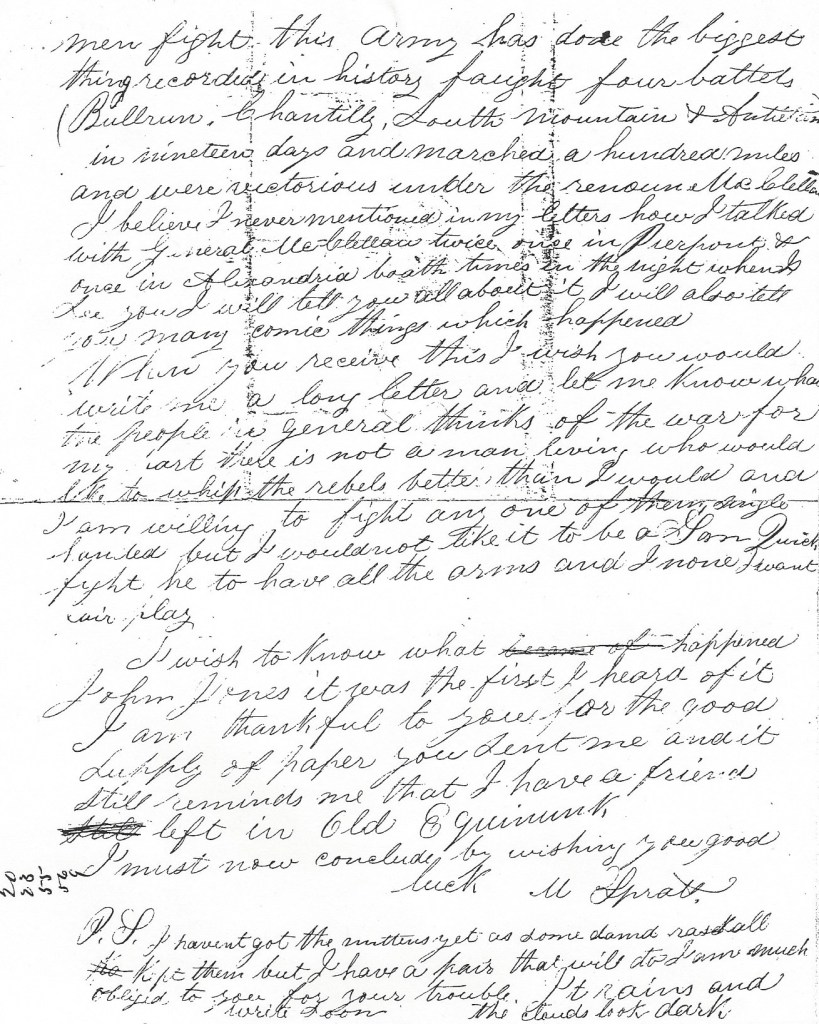 men fight this Army has done the biggest
thing recorded in history faught four battels
(Bullrun, Chantilly, South Mountain & Antietam
in nineteen days and marched a hundred miles
and were victorious under the renoun McClellan
I believe I never mentioned in my letters how I talked
with General McClellan twice once in Pierpont &
once in Alexandria boath times in the night when I
see you I will tell you all about it I will also tell
you many comic things which happened
When you receive this I wish you would
write me a long letter and let me know what
the people in general thinks of the war for
my part there is not a man living who would
like to whip the rebels better than I would and
I am willing to fight any one of them single
handed but I would not like it to be a Quick
fight he to have all the arms and I none I want
fair play
I wish to know what became of happened
John Jones it was the first I heard of it
I am thankful to you for the good
supply of paper you sent me and it
still reminds me that I have a friend
still left in Old Equinunk
I must now conclude by wishing you good
luck M Spratt.
P.S. I havent got the mittens yet as some damd raskall
kept them but I have a pair that will do I am much
obliged to you for your trouble. It rains and
write soon the clouds look dark